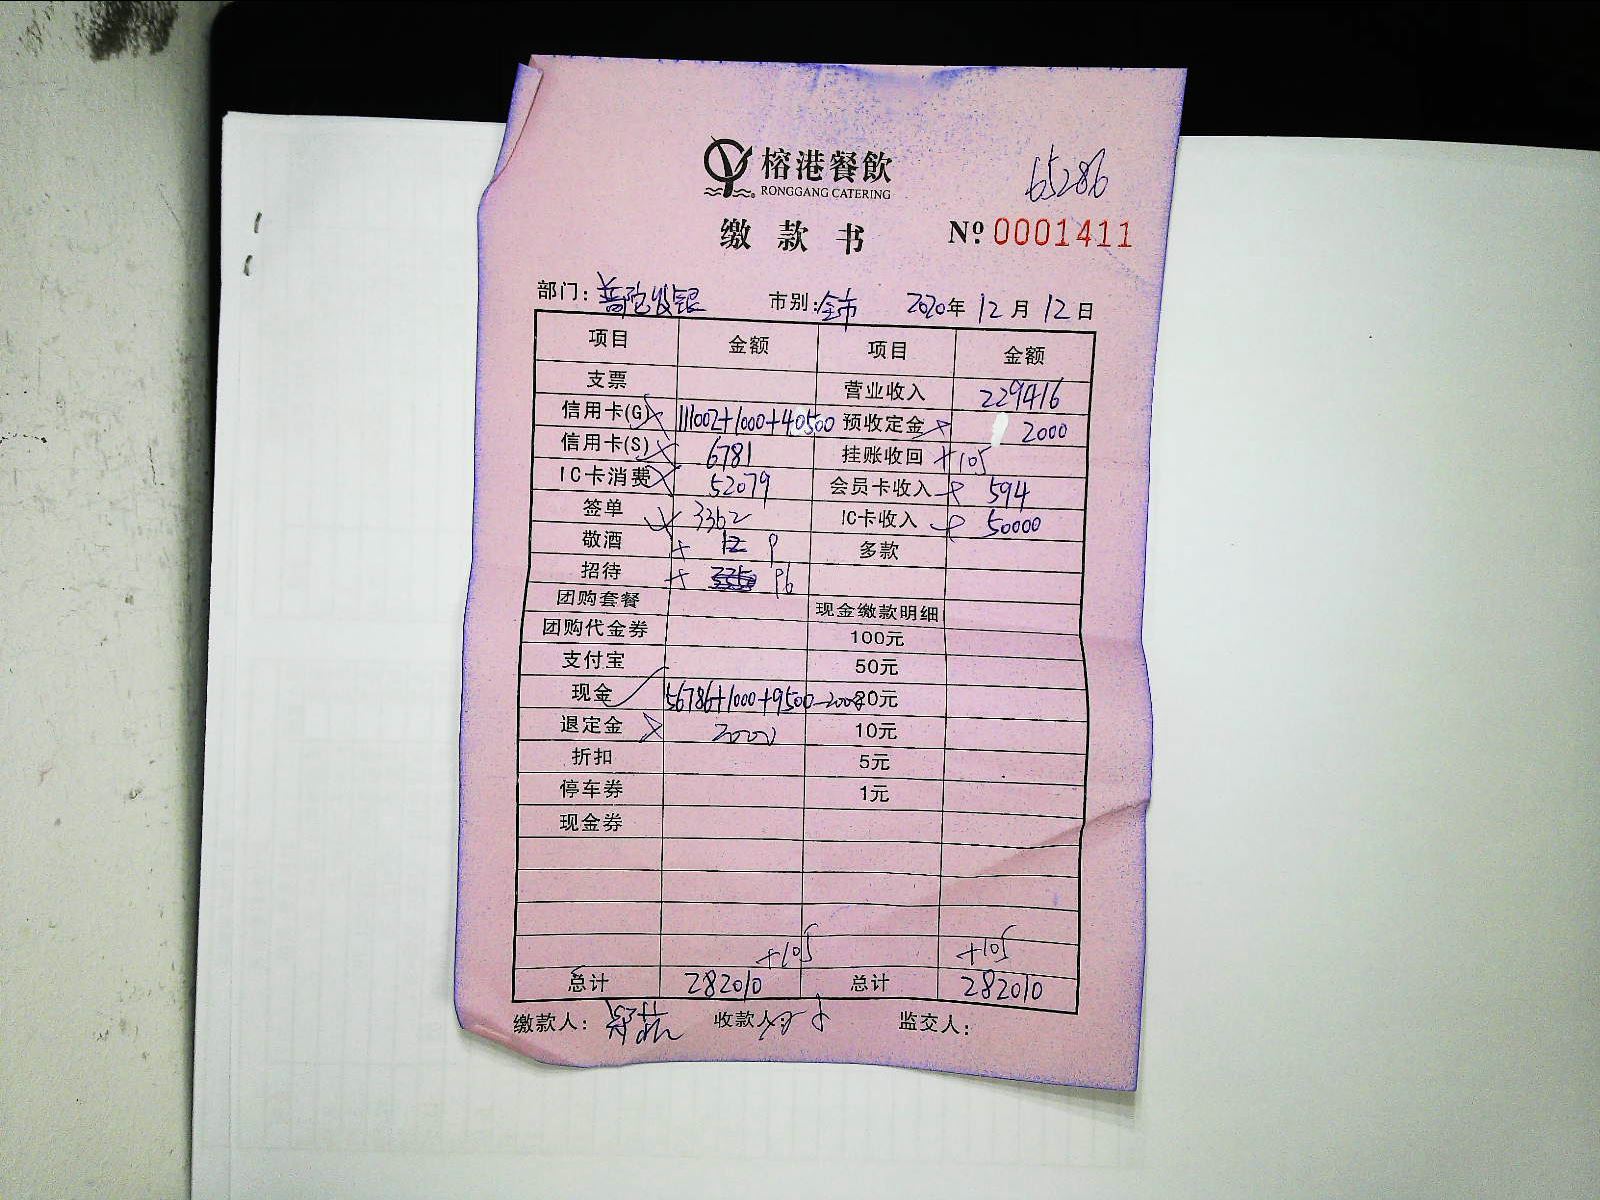 榕港餐飲
RONGGANG CATERING
65286
缴款书 Nº 0001411
部门: 普陀收银 市别: 全市 2020年 12月 12日
项目 金额 项目 金额
支票 营业收入 229416
信用卡(G) 111002+1000+40500 预收定金 2000
信用卡(S) 6781 挂账收回 +105
IC卡消费 52079 会员卡收入 594
签单 3362 IC卡收入 50000
敬酒 多款
招待
团购套餐 现金缴款明细
团购代金券 100元
支付宝 50元
现金 56786+1000+9500-2000 20元
退定金 2000 10元
折扣 5元
停车券 1元
现金券
+105 +105
总计 282010 总计 282010
缴款人: 收款人: 监交人: